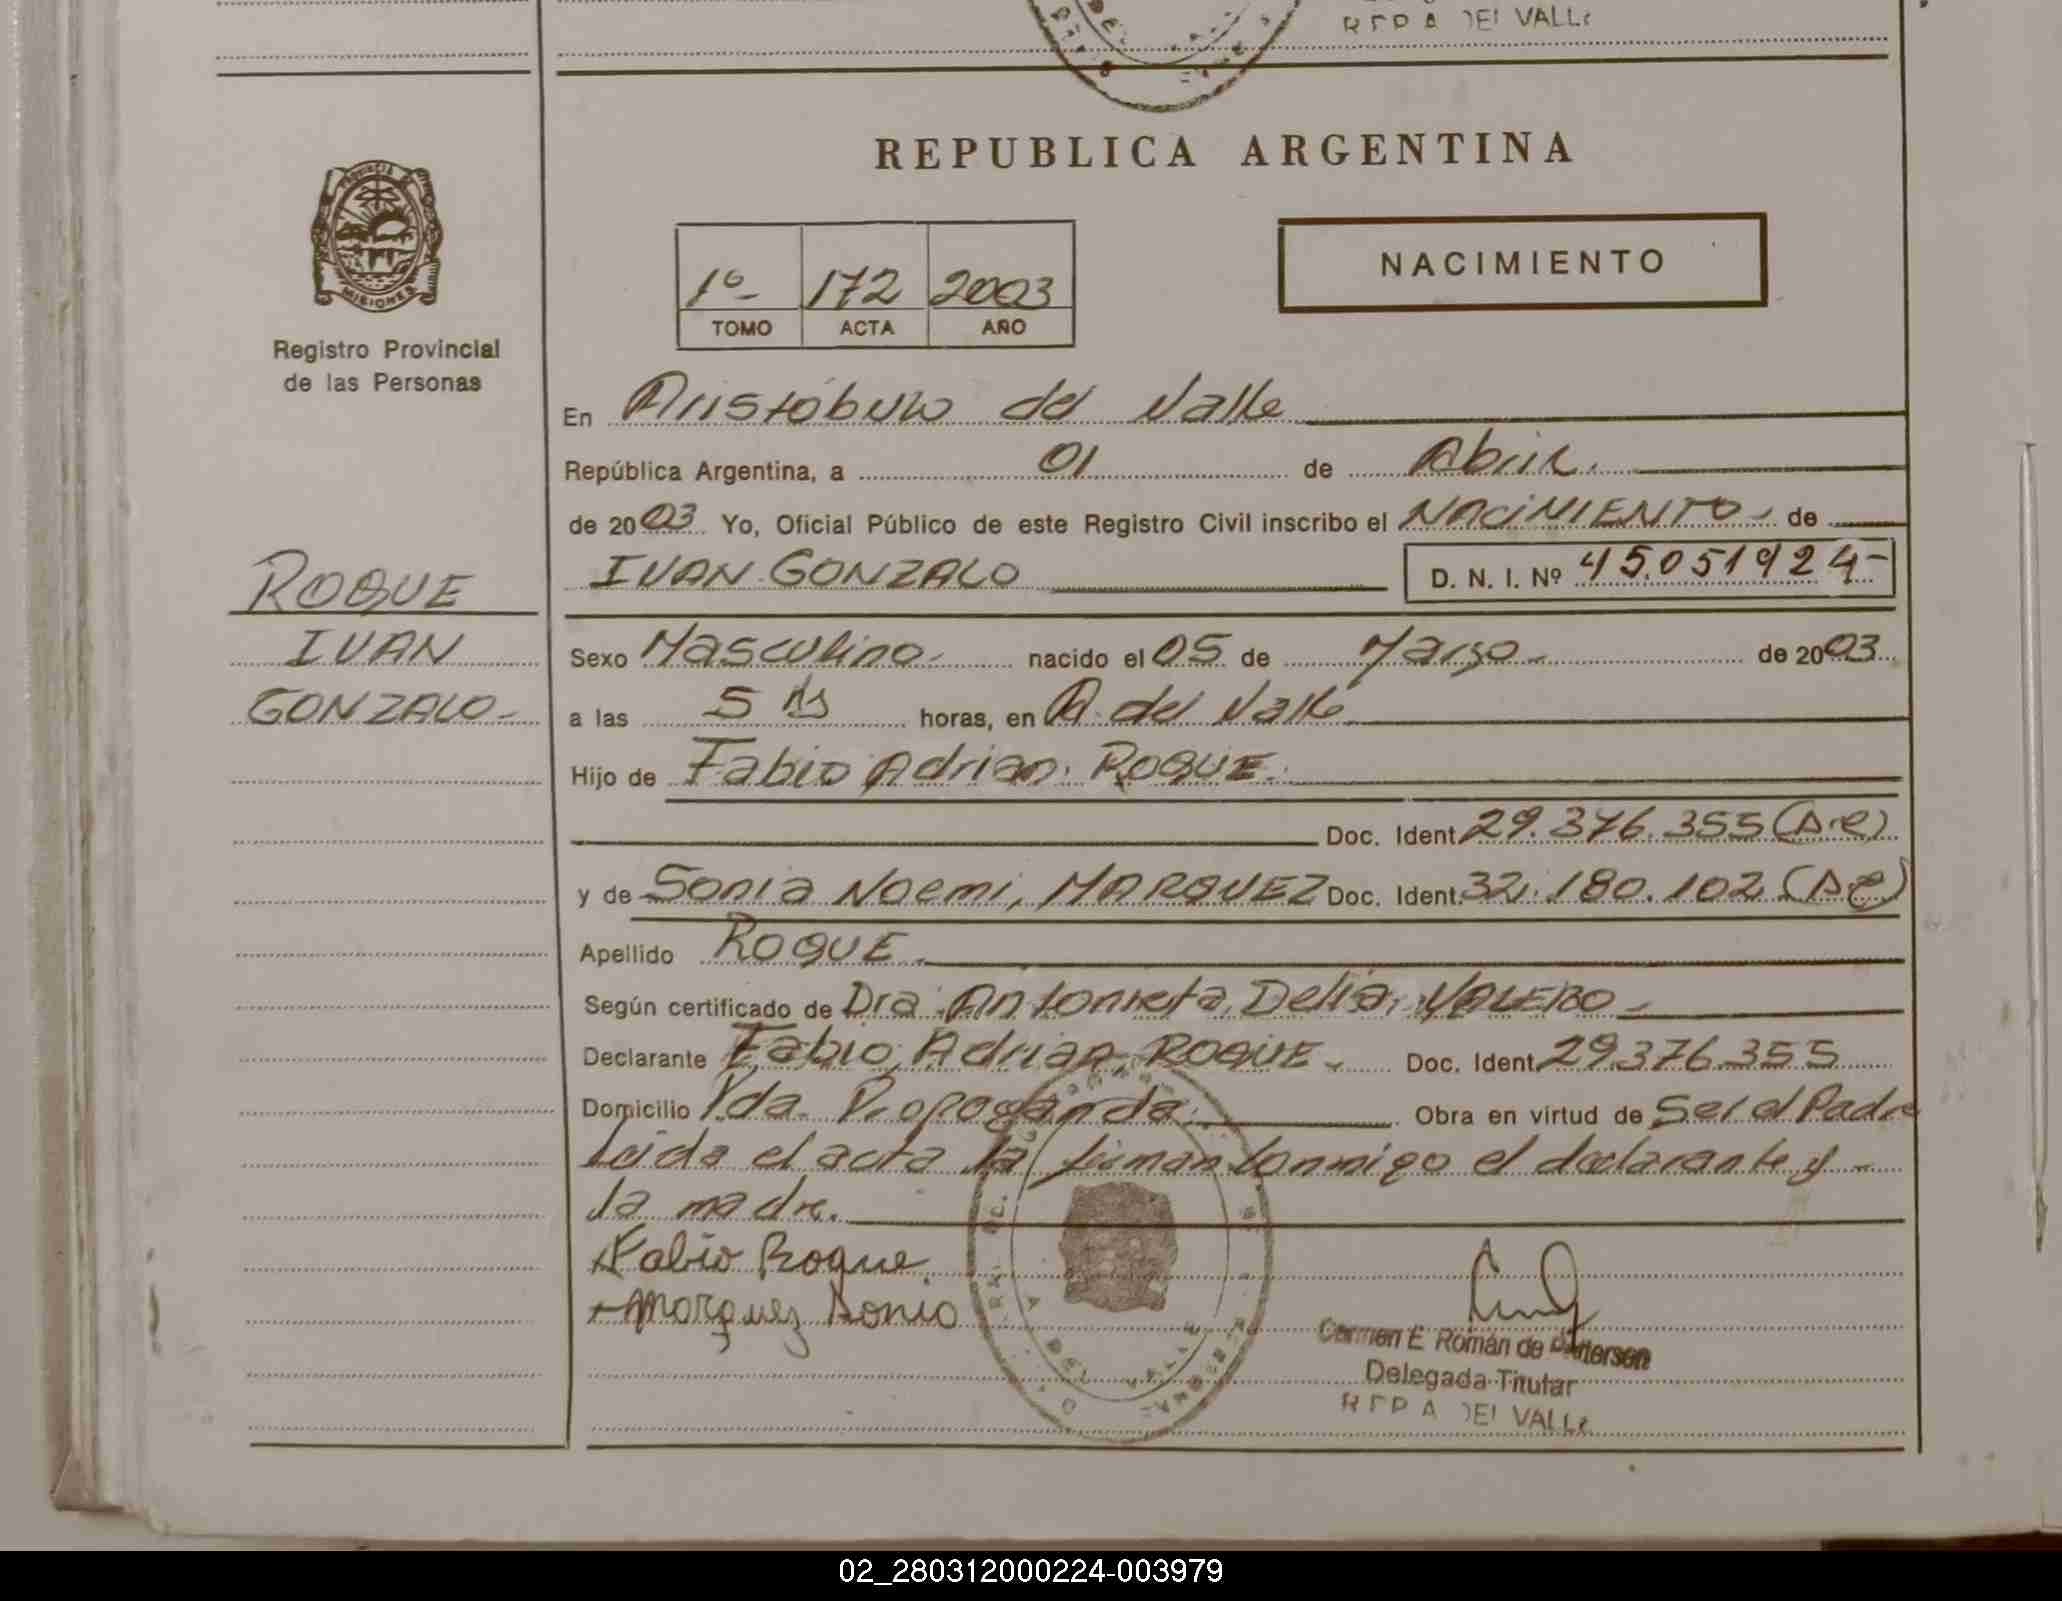 DEL VALLE
REPUBLICA ARGENTINA
PROVINCIA DE
MISIONES
Registro Provincial
de las Personas
1º 172 2003
TOMO ACTA AÑO
NACIMIENTO
En Aristóbulo del Valle
República Argentina, a 01 de Abril.
de 2003 Yo, Oficial Público de este Registro Civil inscribo el NACIMIENTO de
IVAN GONZALO D. N. I. Nº 45.051924-
ROQUE
IVAN
GONZALO-
Sexo Masculino- nacido el 05 de Marzo- de 2003
a las 5 hs horas, en A. del Valle
Hijo de Fabio Adrian. ROQUE.
Doc. Ident. 29.376.355 (A-e)
y de Sonia Noemi, MARQUEZ Doc. Ident. 32.180.102 (A-e)
Apellido ROQUE.
Según certificado de Dra. Antonieta, Delia, VALERO-
Declarante Fabio, Adrian, ROQUE- Doc. Ident. 29.376.355
Domicilio Pda. Propaganda. Obra en virtud de Ser el Padre
Leida el acta la firman conmigo el declarante y -
la madre.
Fabio Roque
Marquez Sonia
Carmen E. Román de
Delegada Titular
DEL VALLE
02_280312000224-003979